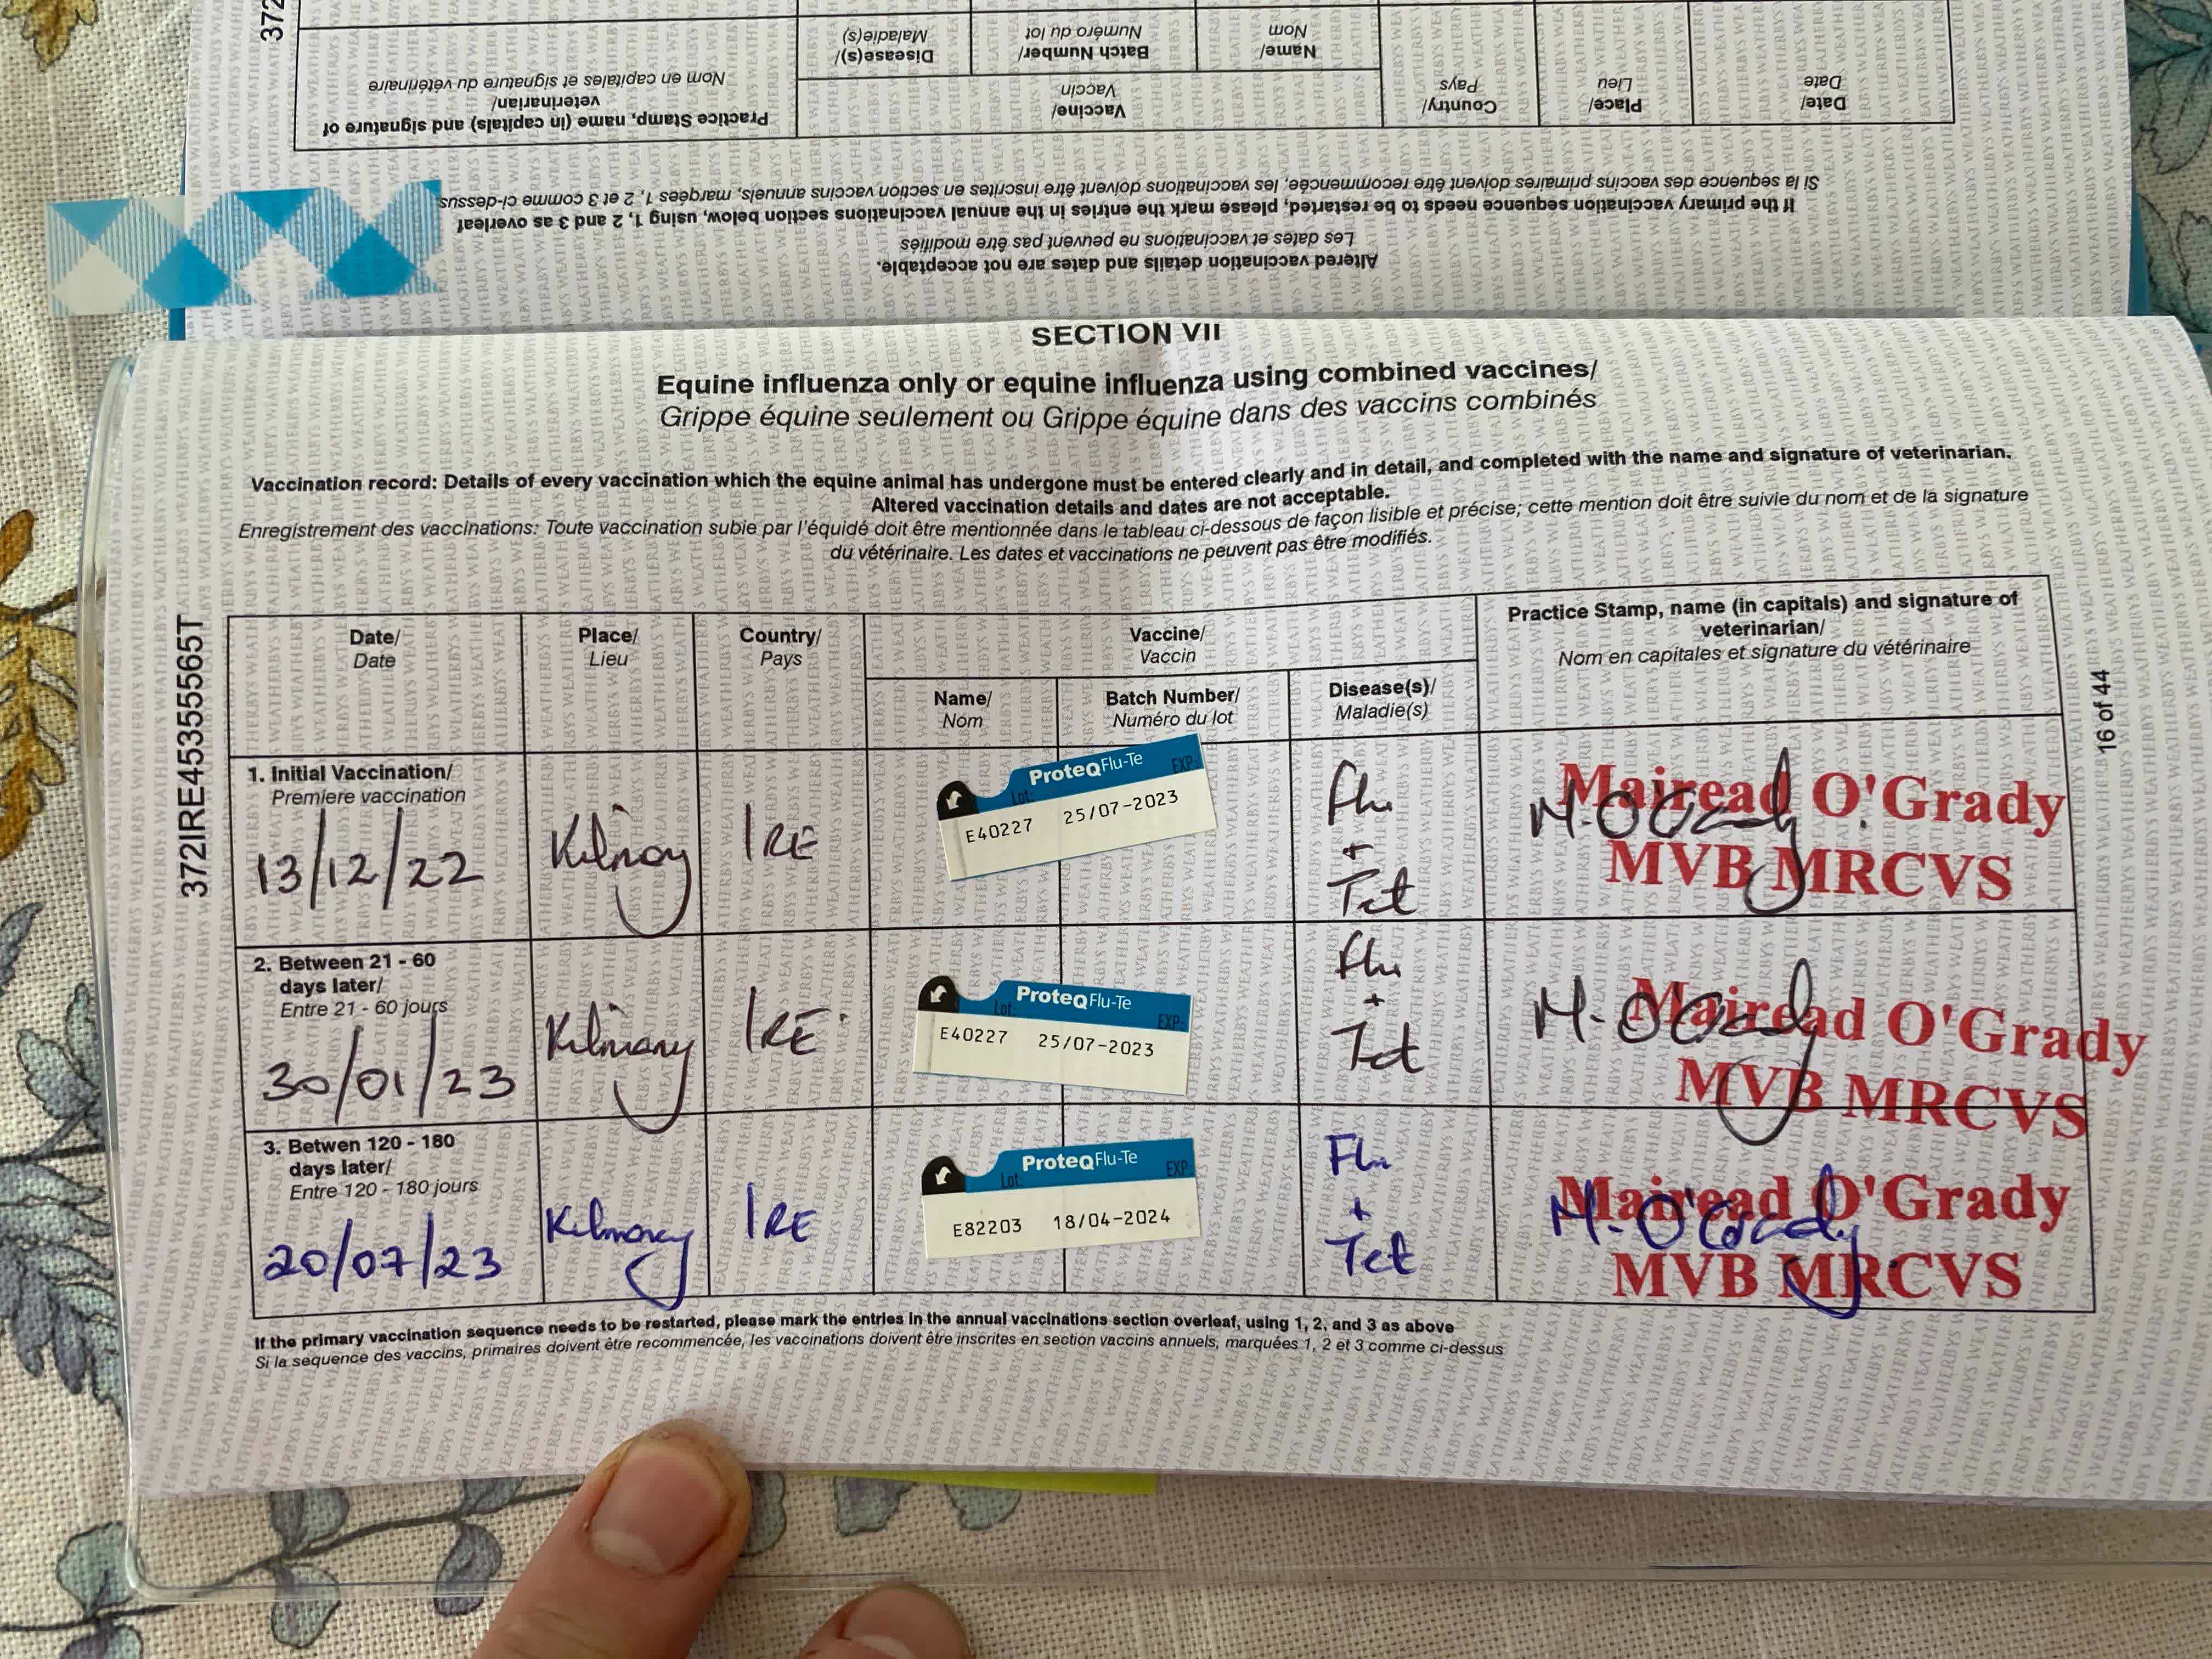 372
Practice Stamp, name (in capitals) and signature of
veterinarian/
Nom en capitales et signature du vétérinaire
Vaccine/
Vaccin
Disease(s)/
Maladie(s)
Batch Number/
Numéro du lot
Name/
Nom
Country/
Pays
Place/
Lieu
Date/
Date
If the primary vaccination sequence needs to be restarted, please mark the entries in the annual vaccinations section below, using 1, 2 and 3 as overleaf
Si la séquence des vaccins primaires doivent être recommencée, les vaccinations doivent être inscrites en section vaccins annuels, marqées 1, 2 et 3 comme ci-dessus
Altered vaccination details and dates are not acceptable.
Les dates et vaccinations ne peuvent pas être modifiés
SECTION VII
Equine influenza only or equine influenza using combined vaccines/
Grippe équine seulement ou Grippe équine dans des vaccins combinés
Vaccination record: Details of every vaccination which the equine animal has undergone must be entered clearly and in detail, and completed with the name and signature of veterinarian.
Altered vaccination details and dates are not acceptable.
Enregistrement des vaccinations: Toute vaccination subie par l'équidé doit être mentionnée dans le tableau ci-dessous de façon lisible et précise; cette mention doit être suivie du nom et de la signature
du vétérinaire. Les dates et vaccinations ne peuvent pas être modifiés.
372IRE45355565T
16 of 44
Date/
Date
Place/
Lieu
Country/
Pays
Vaccine/
Vaccin
Name/
Nom
Batch Number/
Numéro du lot
Disease(s)/
Maladie(s)
Practice Stamp, name (in capitals) and signature of
veterinarian/
Nom en capitales et signature du vétérinaire
1. Initial Vaccination/
Premiere vaccination
13/12/22
IRE
ProteqFlu-Te
Lot: EXP.
E40227 25/07-2023
Flu
+
Tet
Mairead O'Grady
MVB MRCVS
M. O'Grady
2. Between 21 - 60
days later/
Entre 21 - 60 jours
30/01/23
IRE.
ProteqFlu-Te
Lot: EXP.
E40227 25/07-2023
Flu
+
Tet
Mairead O'Grady
MVB MRCVS
M. O'Grady
3. Betwen 120 - 180
days later/
Entre 120 - 180 jours
20/07/23
IRE
ProteqFlu-Te
Lot: EXP
E82203 18/04-2024
Flu
+
Tet
Mairead O'Grady
MVB MRCVS
M. O'Grady
If the primary vaccination sequence needs to be restarted, please mark the entries in the annual vaccinations section overleaf, using 1, 2, and 3 as above
Si la sequence des vaccins, primaires doivent être recommencée, les vaccinations doivent être inscrites en section vaccins annuels, marquées 1, 2 et 3 comme ci-dessus